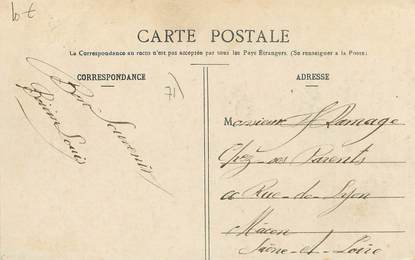 lot
CARTE POSTALE
La Correspondance au recto n'est pas acceptée par tous les Pays Étrangers. (Se renseigner à la Poste)
CORRESPONDANCE
ADRESSE
71
Bon Souvenir
Louis
Monsieur Ramage
Chez ses Parents
Rue-de-Lyon
Mâcon
Saône-et-Loire